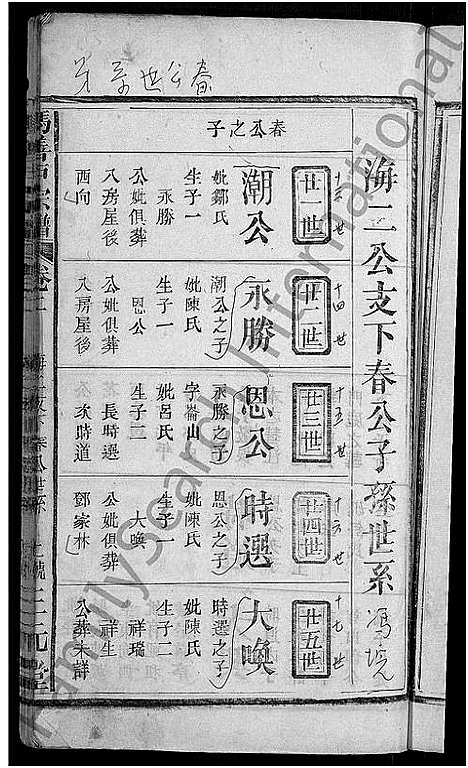 海二公支下春公子孫世系
馮境
十三世
廿一世
潮公
春公之子
妣鄒氏
生子一
永勝
公妣俱葬
八房屋後
西向
十四世
廿二世
永勝
潮公之子
妣陳氏
生子一
恩公
公妣俱葬
八房屋後
十五世
廿三世
恩公
永勝之子
字崙山
妣呂氏
生子二
長時選
次時道
十六世
廿四世
時選
恩公之子
妣陳氏
生子一
大喚
公妣俱葬
鄧家林
十七世
廿五世
大喚
時選之子
妣陳氏
生子二
祥瑞
祥生
公葬未詳
春公世系
卷二
三元堂
FamilySearch International